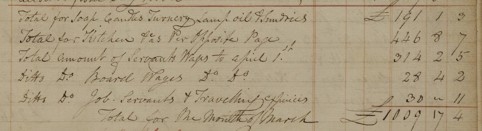 Total for Soap Candles Turnery Lamp oil & Sundries £ 191 1 3
Total for Kitchen &a Per Opposite Page 446 8 7
Total Amount of Servants Wages to April 1st 314 2 5
Ditto Do Board Wages Do Do 28 4 2
Ditto Do Job Servants & Travelling expences 30 - 11
Total for the Month of March £ 1009 17 4